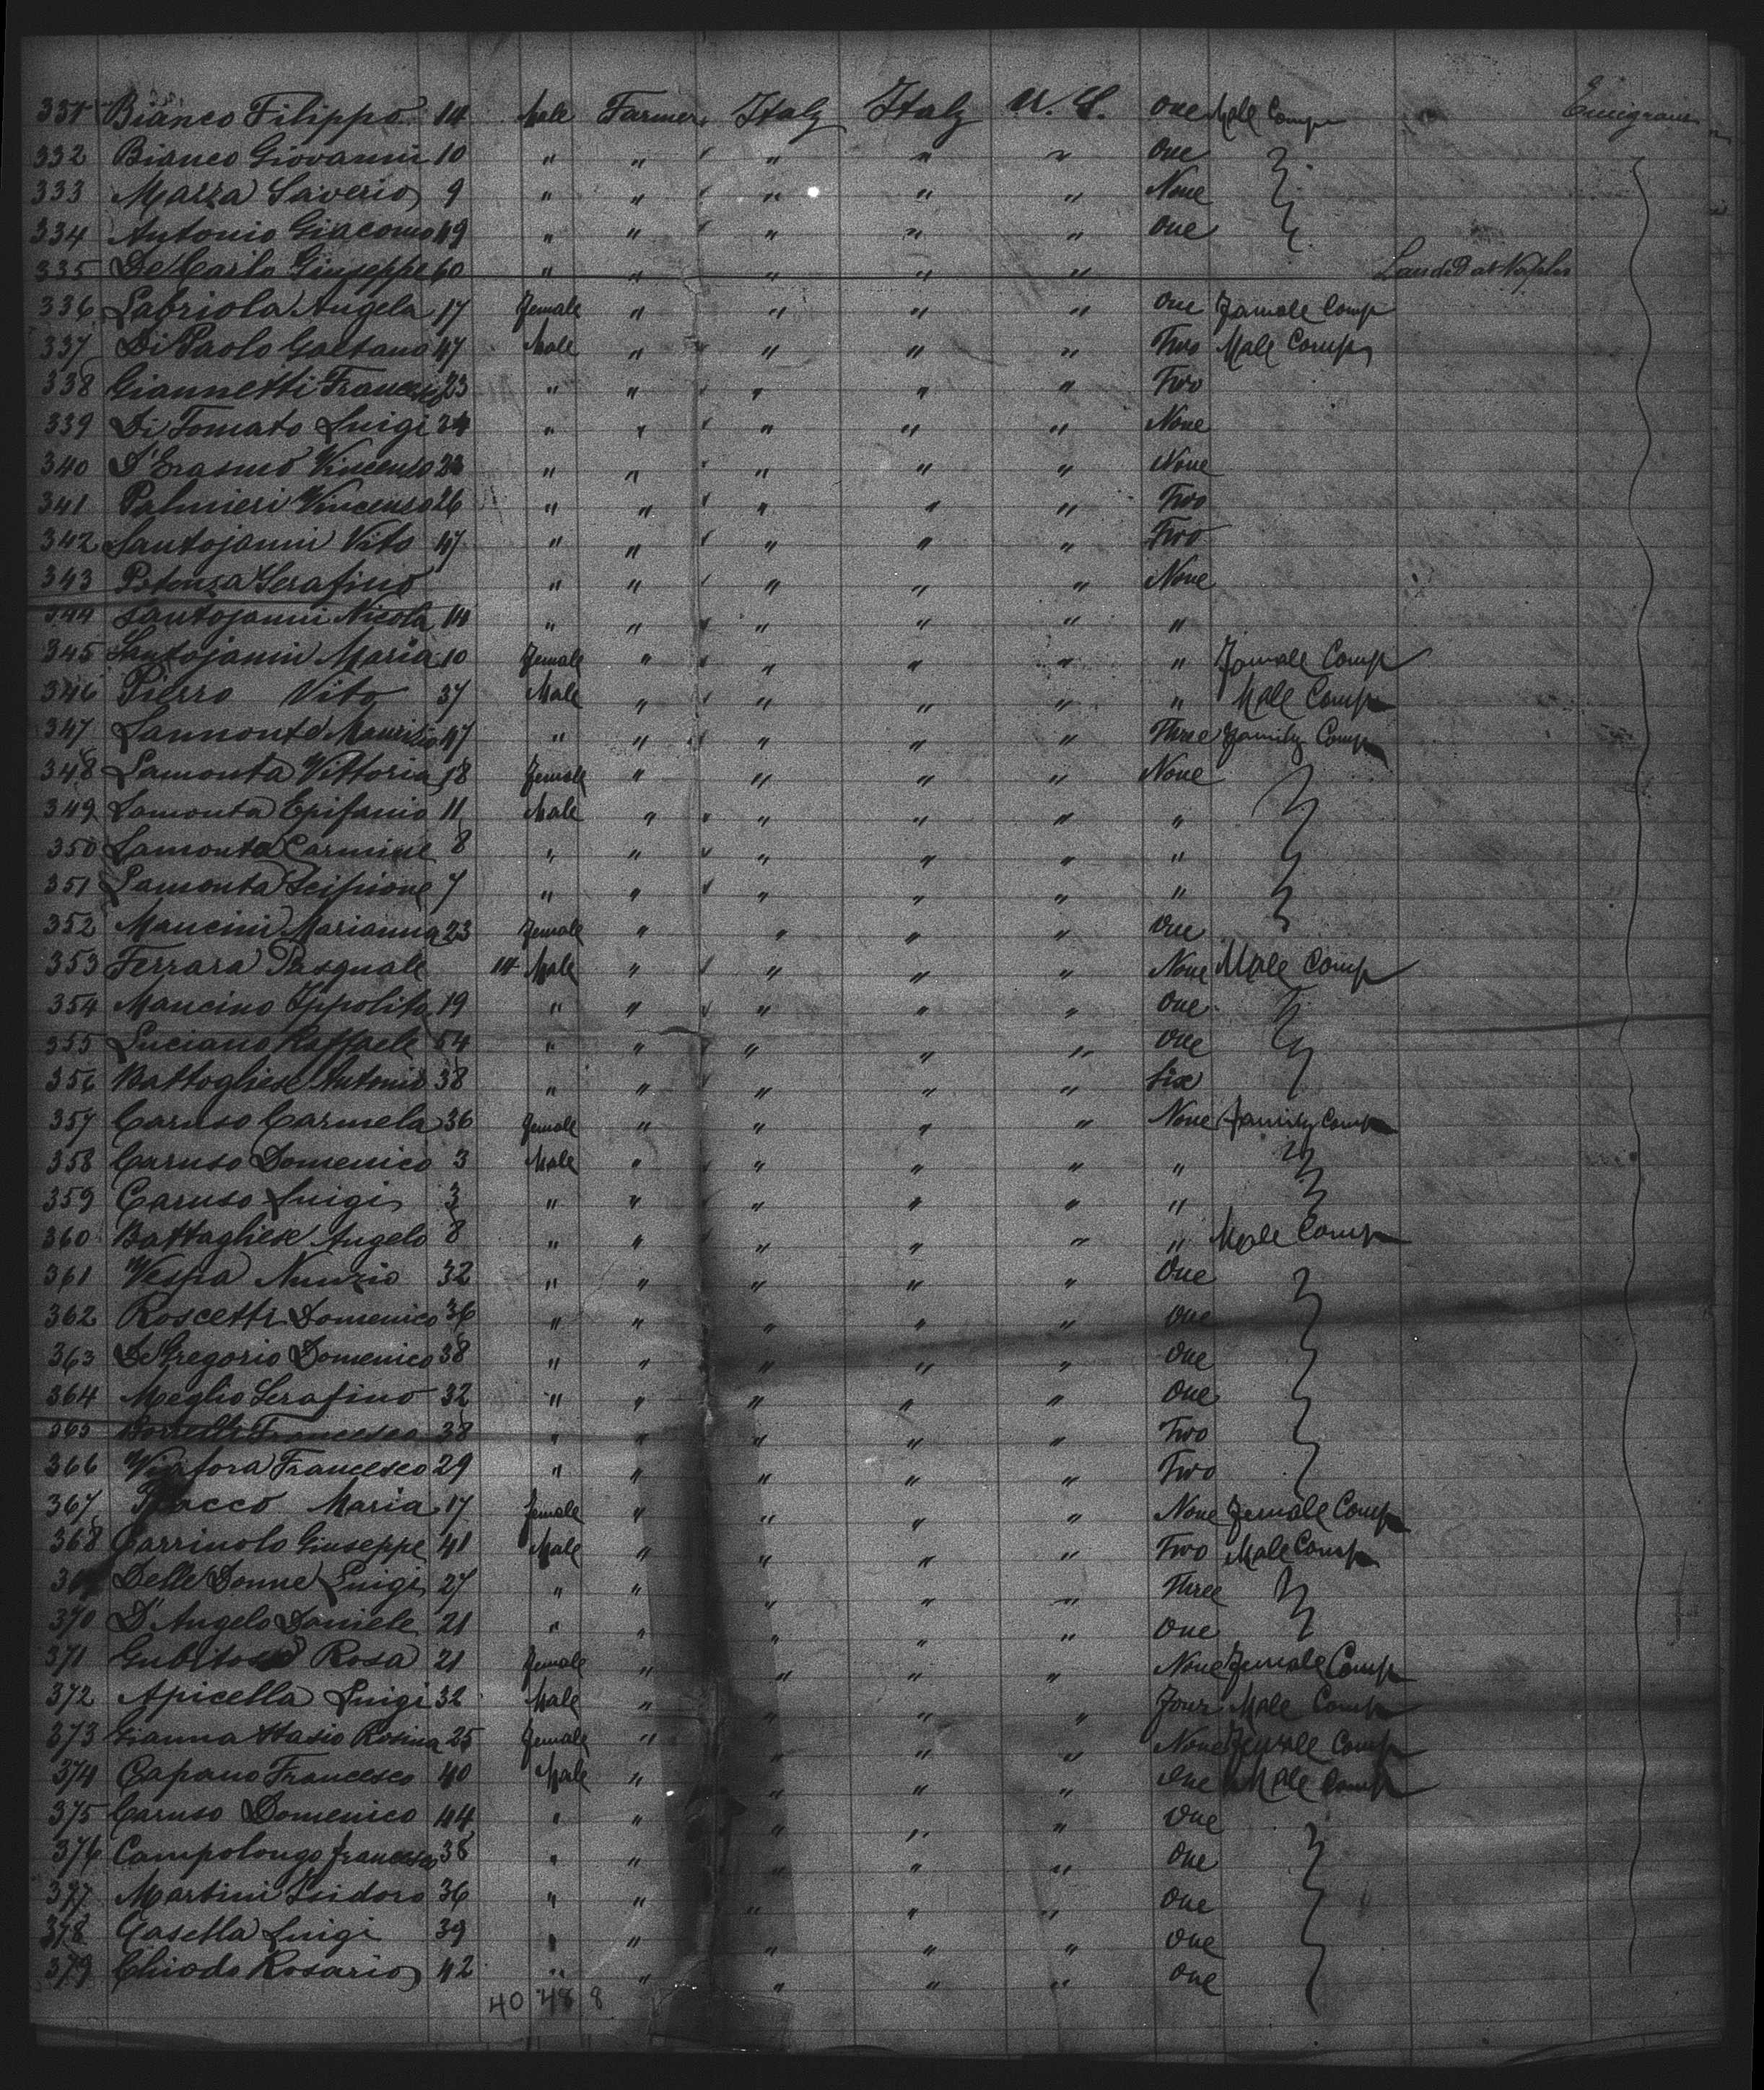 331 Bianco Filippo 14 Male Farmer Italy Italy U.S. One Male Comp Emigrant
332 Bianco Giovanni 10 " " " " " One
333 Marra Saverio 9 " " " " " None
334 Antonio Giacomo 49 " " " " " One
335 De Carlo Giuseppe 60 " " " " " Landed at Naples
336 Labriola Angela 17 Female " " " " One Female Comp
337 Di Paolo Gaetano 47 Male " " " " Two Male Comp
338 Giannetti Francesco 23 " " " " " Two
339 Di Tomato Luigi 24 " " " " " None
340 D'Erasmo Vincenso " " " " " None
341 Palmieri Vincenso 26 " " " " " Two
342 Santojanni Vito 47 " " " " " Two
343 Potenza Serafino " " " " " None
344 Santojanni Nicola 14 " " " " " "
345 Santojanni Maria 10 Female " " " " " Female Comp
346 Pierro Vito 37 Male " " " " " Male Comp
347 Lamonte Maurizio 47 " " " " " Three Family Comp
348 Lamonta Vittoria 18 Female " " " " None
349 Lamonta Epifanio 11 Male " " " " "
350 Lamonta Carmine 8 " " " " " "
351 Lamonta Scipione 7 " " " " " "
352 Mancini Marianna 23 Female " " " " One
353 Ferrara Pasquale 14 Male " " " " None Male Comp
354 Mancino Ippolito 19 " " " " " One
355 Luciano Raffaele 54 " " " " " One
356 Battagliese Antonio 38 " " " " " Six
357 Caruso Carmela 36 Female " " " " None Family Comp
358 Caruso Domenico 3 Male " " " " "
359 Caruso Luigi 3 " " " " " "
360 Battagliese Angelo 8 " " " " " " Male Comp
361 Vespa Nunzio 32 " " " " " One
362 Roscetti Domenico 36 " " " " " One
363 De Gregorio Domenico 38 " " " " " One
364 Meglio Serafino 32 " " " " " One
365 Borrelli Francesco 38 " " " " " Two
366 Viafora Francesco 29 " " " " " Two
367 Maria 17 Female " " " " None Female Comp
368 Carrinolo Giuseppe 41 Male " " " " Two Male Comp
Delle Donne Luigi 27 " " " " " Three
370 D'Angelo Daniele 21 " " " " " One
371 Gubitosi Rosa 21 Female " " " " None Female Comp
372 Apicella Luigi 32 Male " " " " Four Male Comp
373 Gianna Stasio Rosina 25 Female " " " " None Female Comp
374 Capano Francesco 40 Male " " " " One Male Comp
375 Caruso Domenico 44 " " " " " One
376 Campolongo Francesco 38 " " " " " One
377 Martini Isidoro 36 " " " " " One
378 Casella Luigi 39 " " " " " One
379 Chiodo Rosario 42 " " " " " One
40 48 8